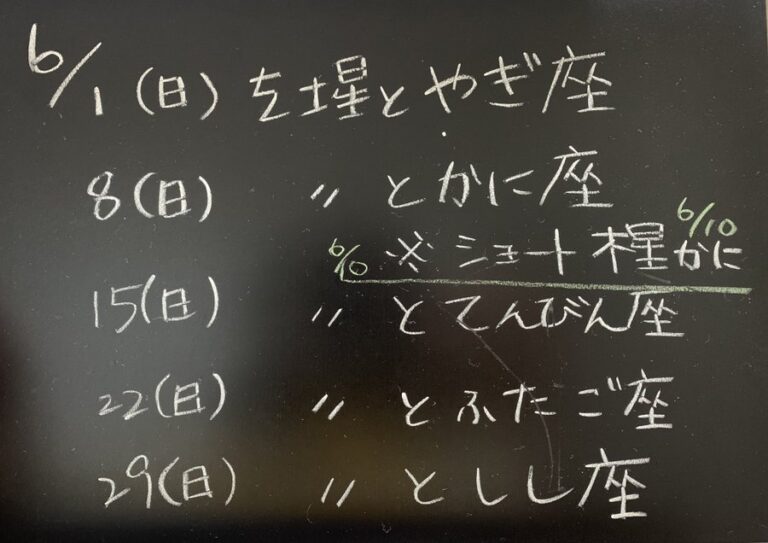 6/1(日) を土星とやぎ座
8(日) 〃 とかに座
6/10 ※ショート 木星かに 6/10
15(日) 〃 とてんびん座
22(日) 〃 とふたご座
29(日) 〃 としし座